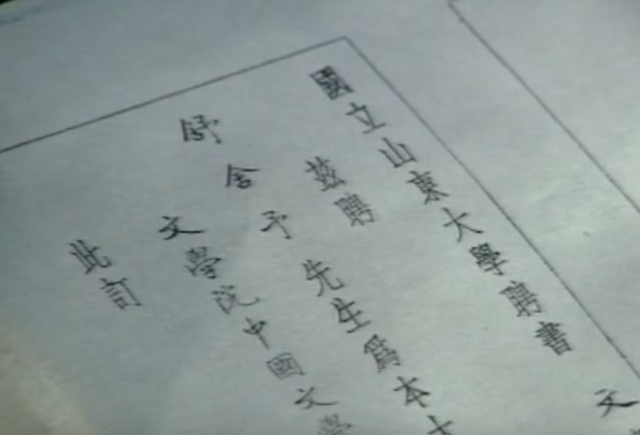 國立山東大學聘書 文
茲聘
舒舍予先生爲本大
文學院中國文學
此訂